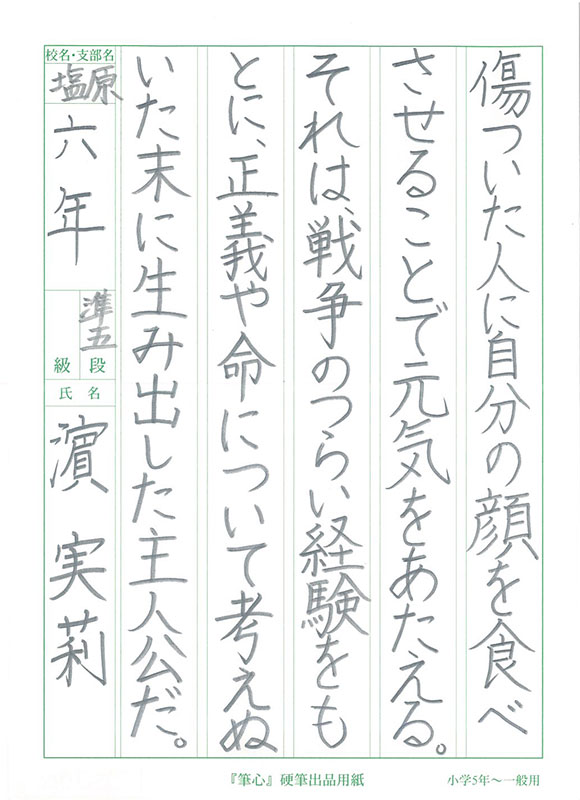 傷ついた人に自分の顔を食べ
させることで元気をあたえる。
それは、戦争のつらい経験をも
とに、正義や命について考えぬ
いた末に生み出した主人公だ。
校名・支部名
塩原
六年
準五
段
級
氏名
濵実莉
『筆心』硬筆出品用紙
小学5年～一般用